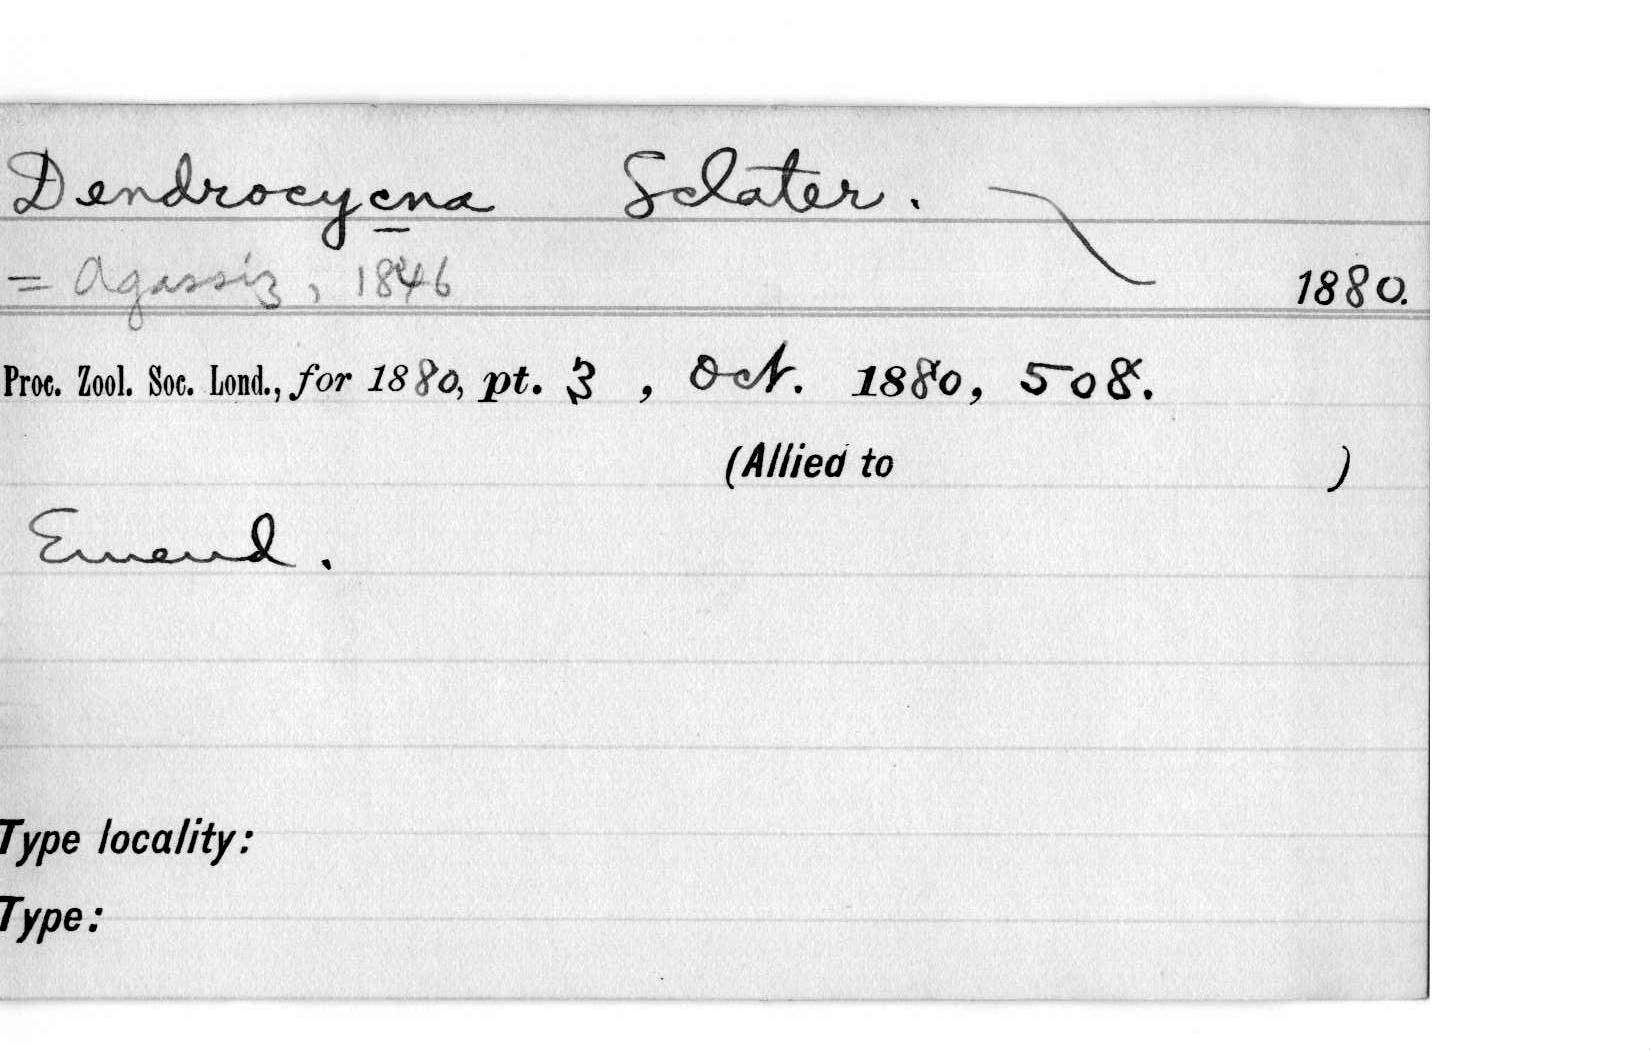 Dendrocycna Sclater.
= Agassiz, 1846 1880.
Proc. Zool. Soc. Lond., for 1880, pt. 3 , Oct. 1880, 508.
(Allied to )
Emend.
Type locality:
Type: